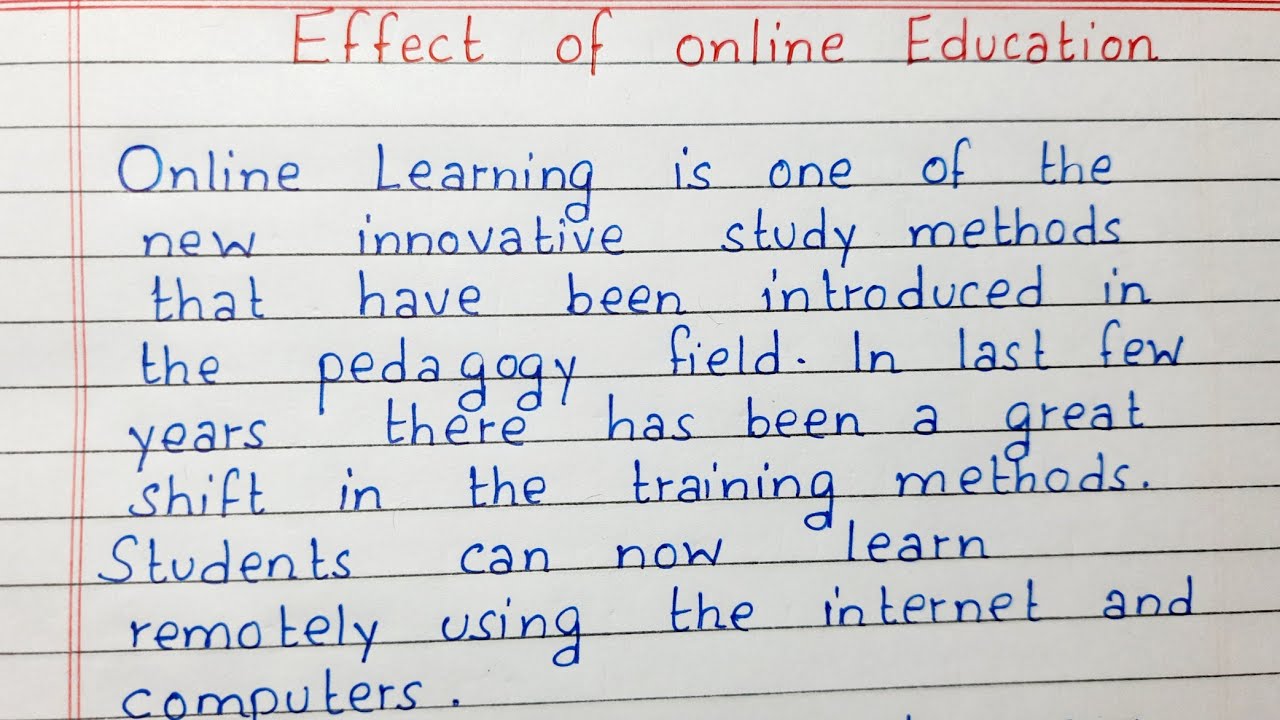 Effect of online Education
Online Learning is one of the
new innovative study methods
that have been introduced in
the pedagogy field. In last few
years there has been a great
shift in the training methods.
Students can now learn
remotely using the internet and
computers.